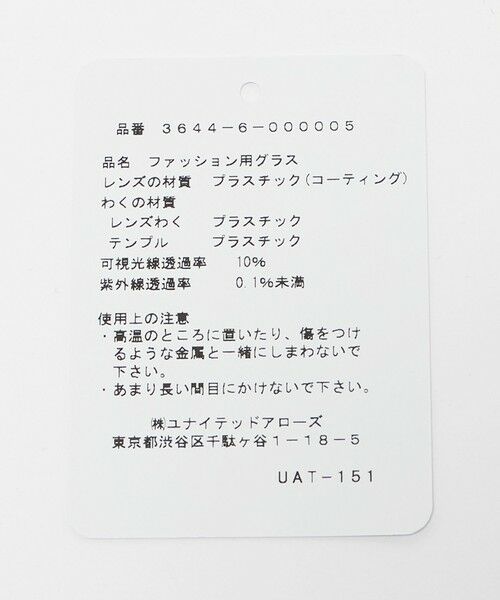 品番 3644-6-000005
品名 ファッション用グラス
レンズの材質 プラスチック(コーティング)
わくの材質
レンズわく プラスチック
テンプル プラスチック
可視光線透過率 10%
紫外線透過率 0.1%未満
使用上の注意
・高温のところに置いたり、傷をつけ
るような金属と一緒にしまわないで
下さい。
・あまり長い間目にかけないで下さい。
㈱ユナイテッドアローズ
東京都渋谷区千駄ヶ谷1-18-5
UAT-151